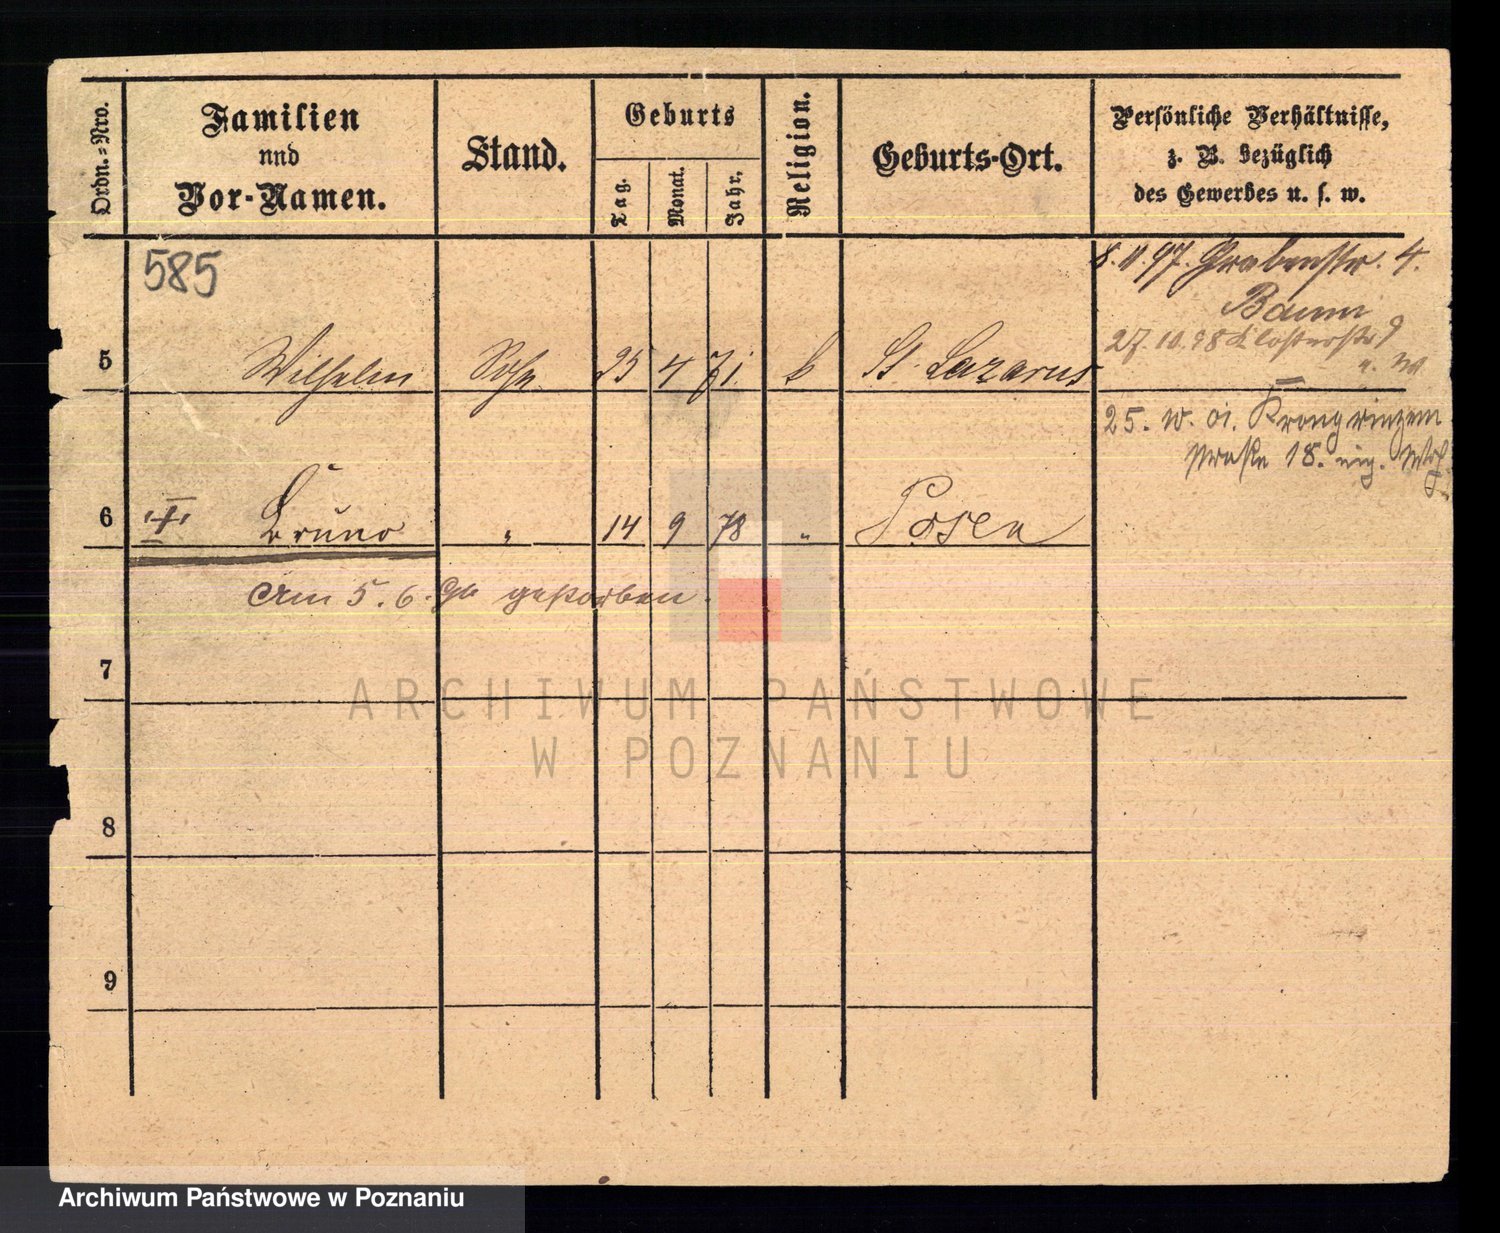 Ordn.-Nro.
Familien
nnd
Vor-Namen.
Stand.
Geburts
Tag.
Monat.
Jahr.
Religion.
Geburts-Ort.
Persönliche Verhältnisse,
z. B. bezüglich
des Gewerbes u. s. w.
585
8. 11. 97. Grabenstr. 4.
27.10.98 Klosterstr
5 Wilhelm Sohn 25 4 71. k St. Lazarus
25. 01. Kronprinzen
straße 18. eig.
6 Bruno " 14 9 78 " Posen
Am 5. 6. gestorben.
7
8
9
ARCHIWUM PAŃSTWOWE
W POZNANIU
Archiwum Państwowe w Poznaniu